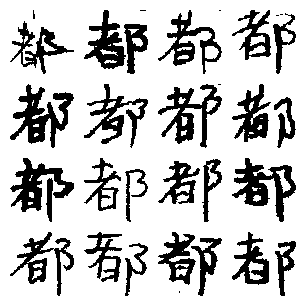 都都都都
都都都都
都都都都
都都都都